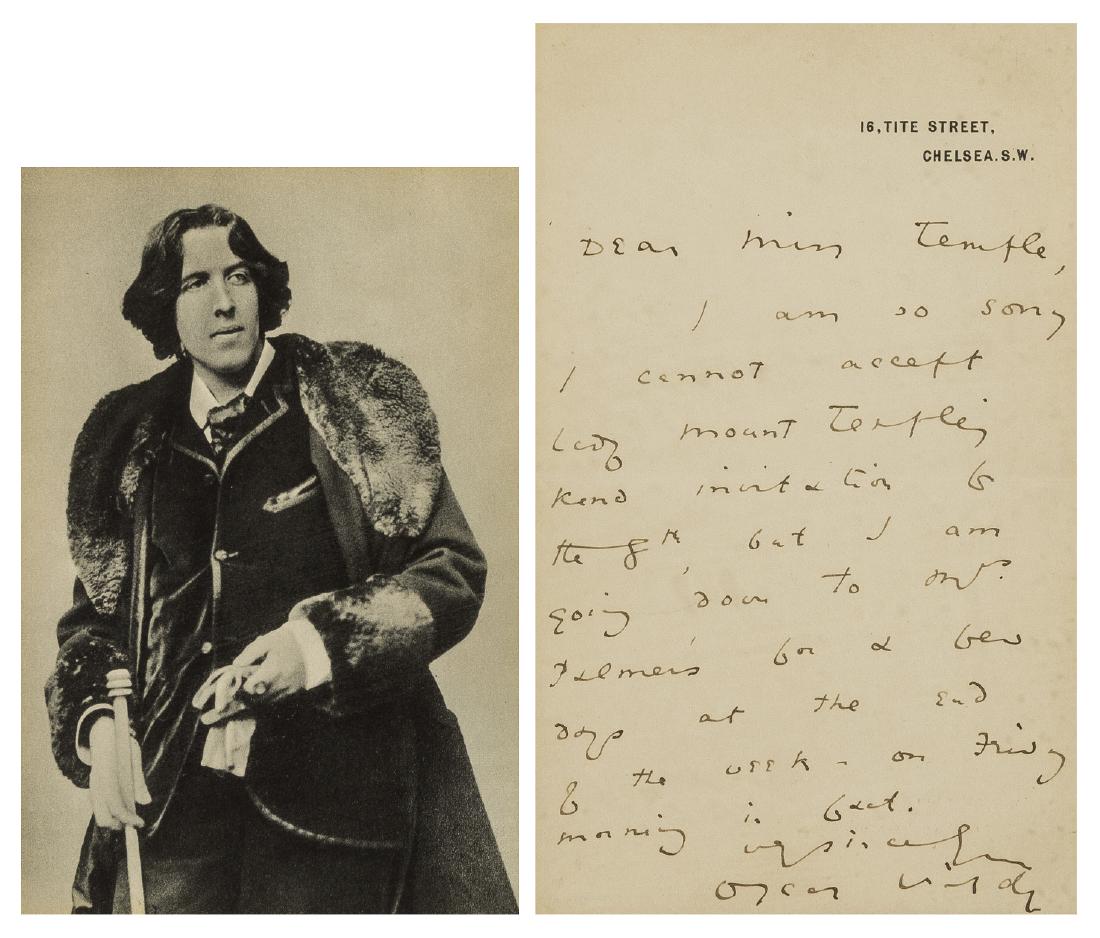 16, TITE STREET,
CHELSEA. S.W.
Dear Miss Temple,
I am so sorry
I cannot accept
Lady Mount Temple's
kind invitation for
the 8th, but I am
going down to Mrs.
Palmer's for a few
days at the end
of the week - on Friday
morning in fact.
Oscar Wilde